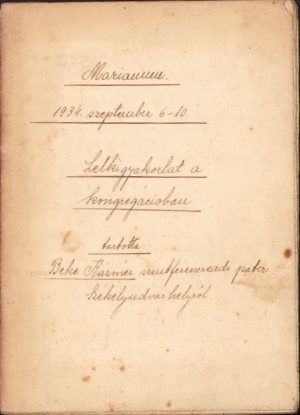 Mariannen.
1934. szeptember 6-10
Lelkigyakorlat a
kongregációban
tartotta:
Beke Kázmér szentferencrendi páter
Székelyudvarhelyről